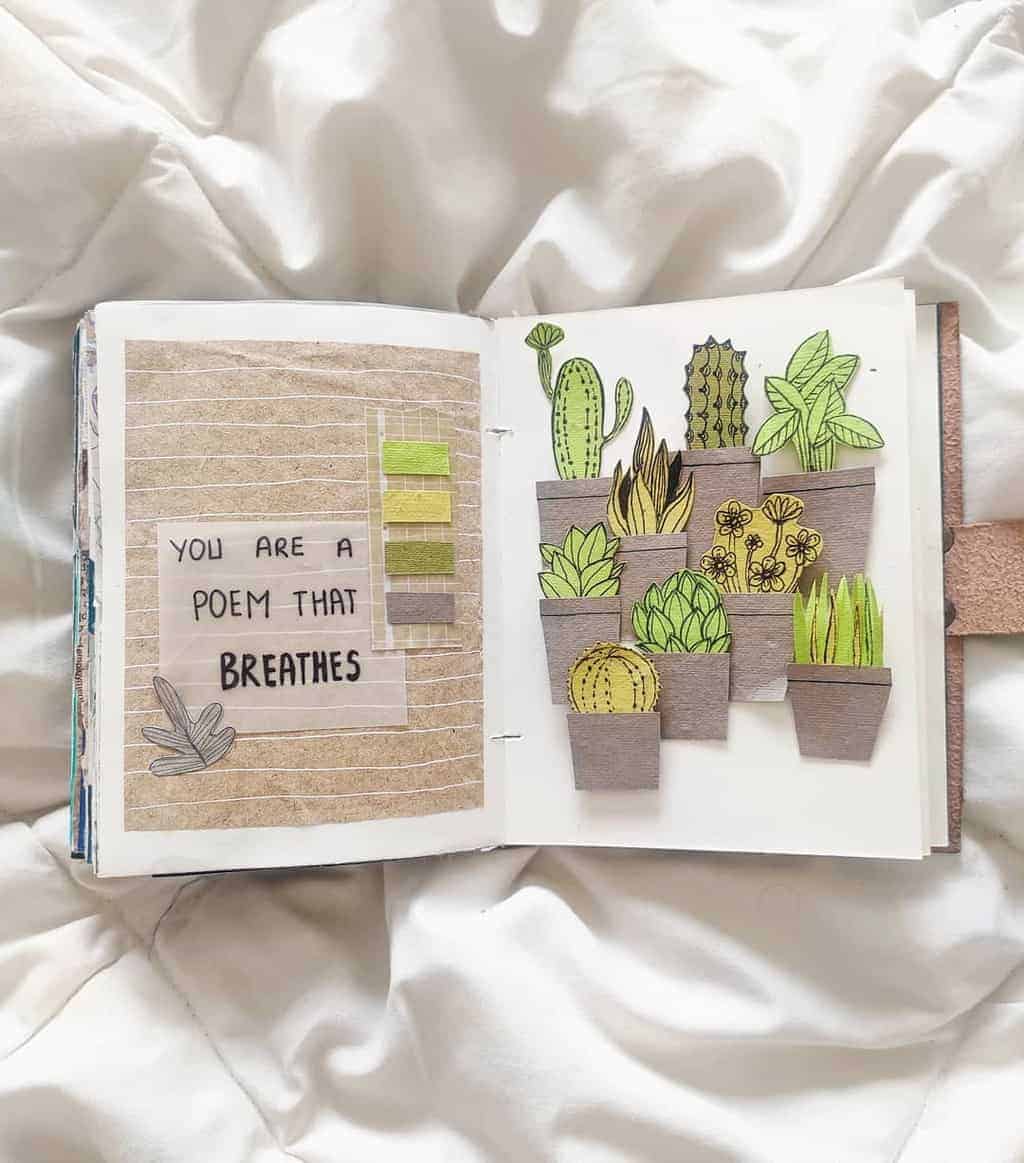 YOU ARE A
POEM THAT
BREATHES